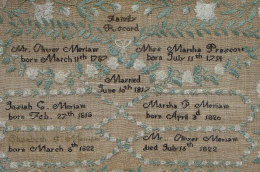 Family
Record
Mr. Oliver Meriam Miss Marsha Prescott
born March 11th 1787 born July 11th
Married
June 10th
Josiah C. Meriam Marsha P. Meriam
born Feb. 27th 1818 born April 3d 1820
Mr. Oliver Meriam
born March 8th 1822 died July 15th 1822